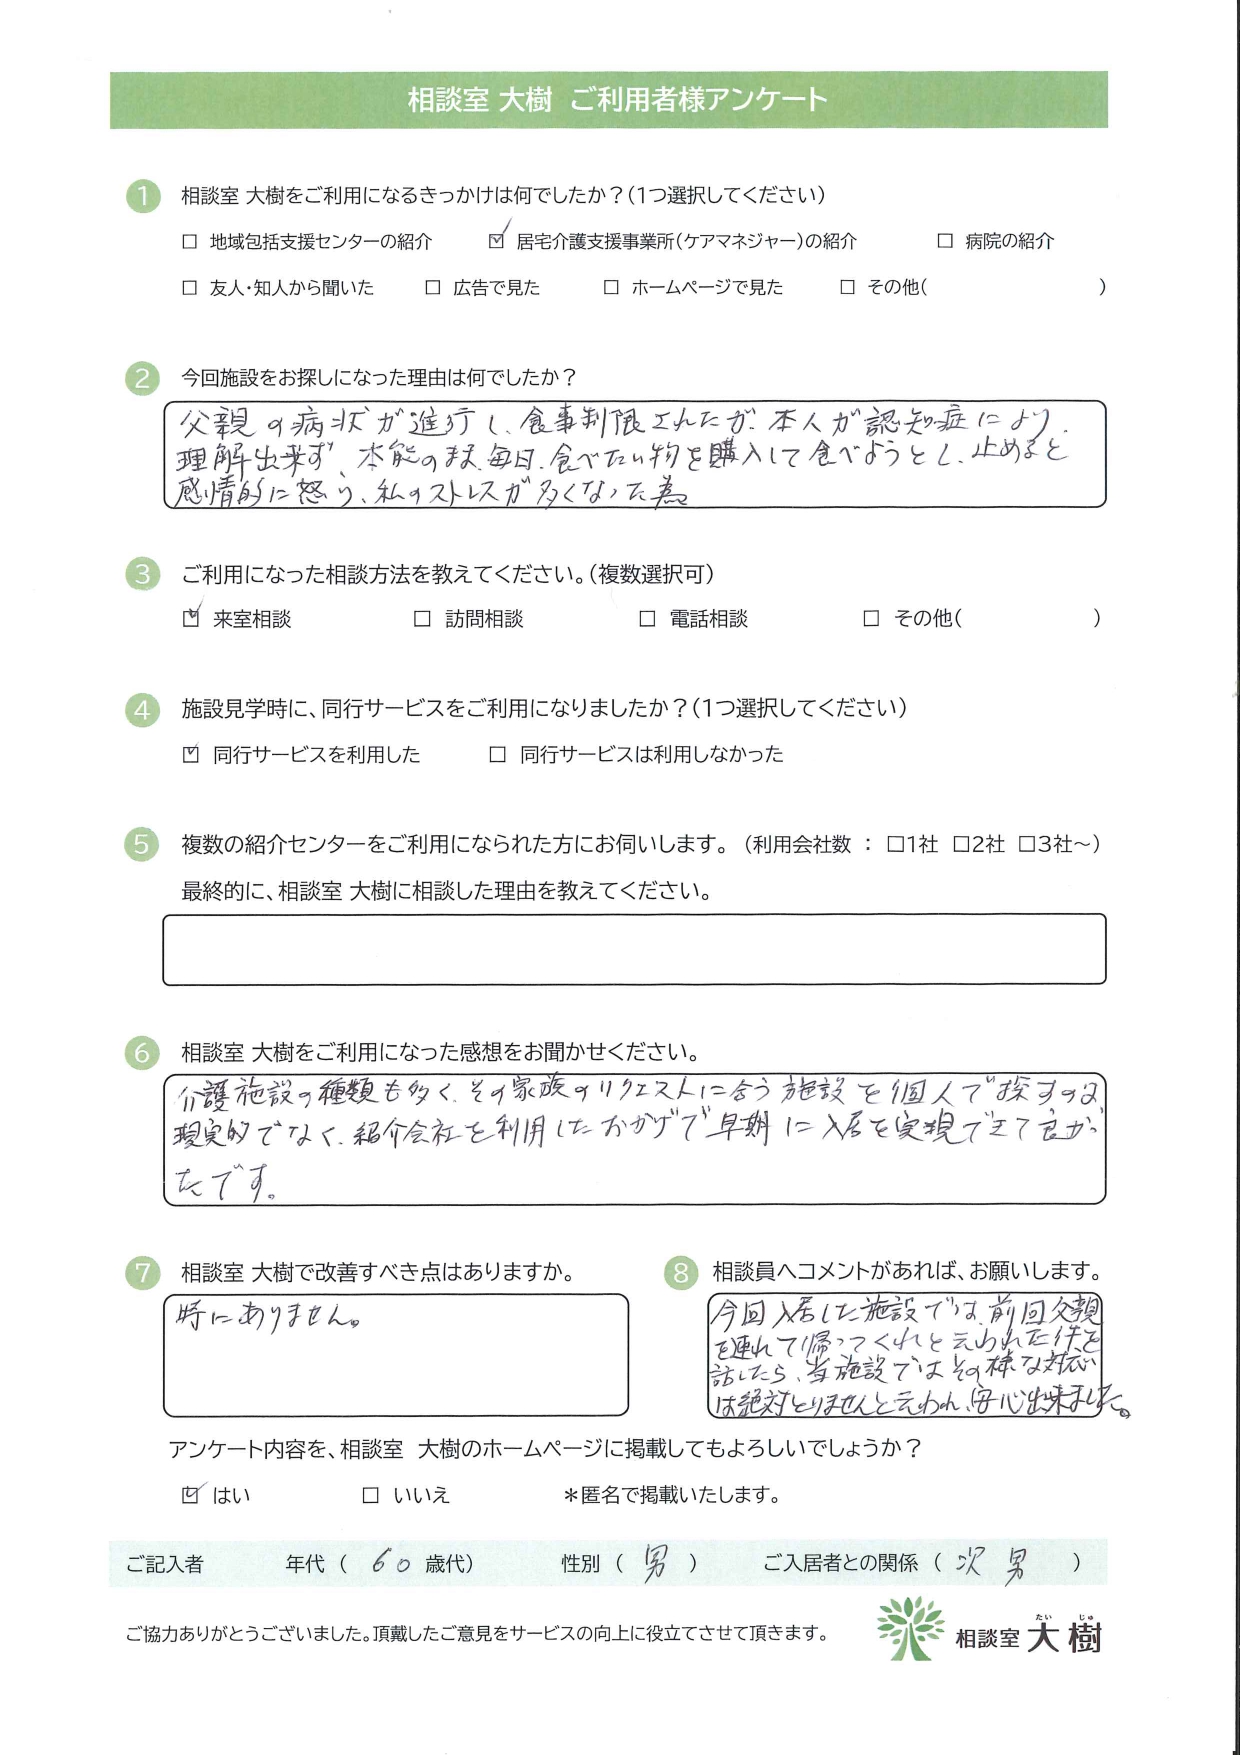 相談室 大樹 ご利用者様アンケート
1 相談室 大樹をご利用になるきっかけは何でしたか？(1つ選択してください)
□ 地域包括支援センターの紹介 ☑ 居宅介護支援事業所(ケアマネジャー)の紹介 □ 病院の紹介
□ 友人・知人から聞いた □ 広告で見た □ ホームページで見た □ その他( )
2 今回施設をお探しになった理由は何でしたか？
父親の病状が進行し、食事制限されたが、本人が認知症により、
理解出来ず、本能のまま、毎日、食べたい物を購入して食べようとし、止めると
感情的に怒り、私のストレスが多くなった為
3 ご利用になった相談方法を教えてください。(複数選択可)
☑ 来室相談 □ 訪問相談 □ 電話相談 □ その他( )
4 施設見学時に、同行サービスをご利用になりましたか？(1つ選択してください)
☑ 同行サービスを利用した □ 同行サービスは利用しなかった
5 複数の紹介センターをご利用になられた方にお伺いします。(利用会社数 ： □1社 □2社 □3社～)
最終的に、相談室 大樹に相談した理由を教えてください。
6 相談室 大樹をご利用になった感想をお聞かせください。
介護施設の種類も多く、その家族のリクエストに合う施設を個人で探すのは
現実的でなく、紹介会社を利用したおかげで早期に入居を実現できて良かっ
たです。
7 相談室 大樹で改善すべき点はありますか。
特にありません。
8 相談員へコメントがあれば、お願いします。
今回入居した施設では、前回父親
を連れて帰ってくれと云われた件を
話したら、当施設ではその様な対応
は絶対とりませんと云われ、安心出来ました。
アンケート内容を、相談室 大樹のホームページに掲載してもよろしいでしょうか？
☑ はい □ いいえ ＊匿名で掲載いたします。
ご記入者 年代 ( 60 歳代) 性別 ( 男 ) ご入居者との関係 ( 次男 )
ご協力ありがとうございました。頂戴したご意見をサービスの向上に役立てさせて頂きます。
たい じゅ
相談室 大樹